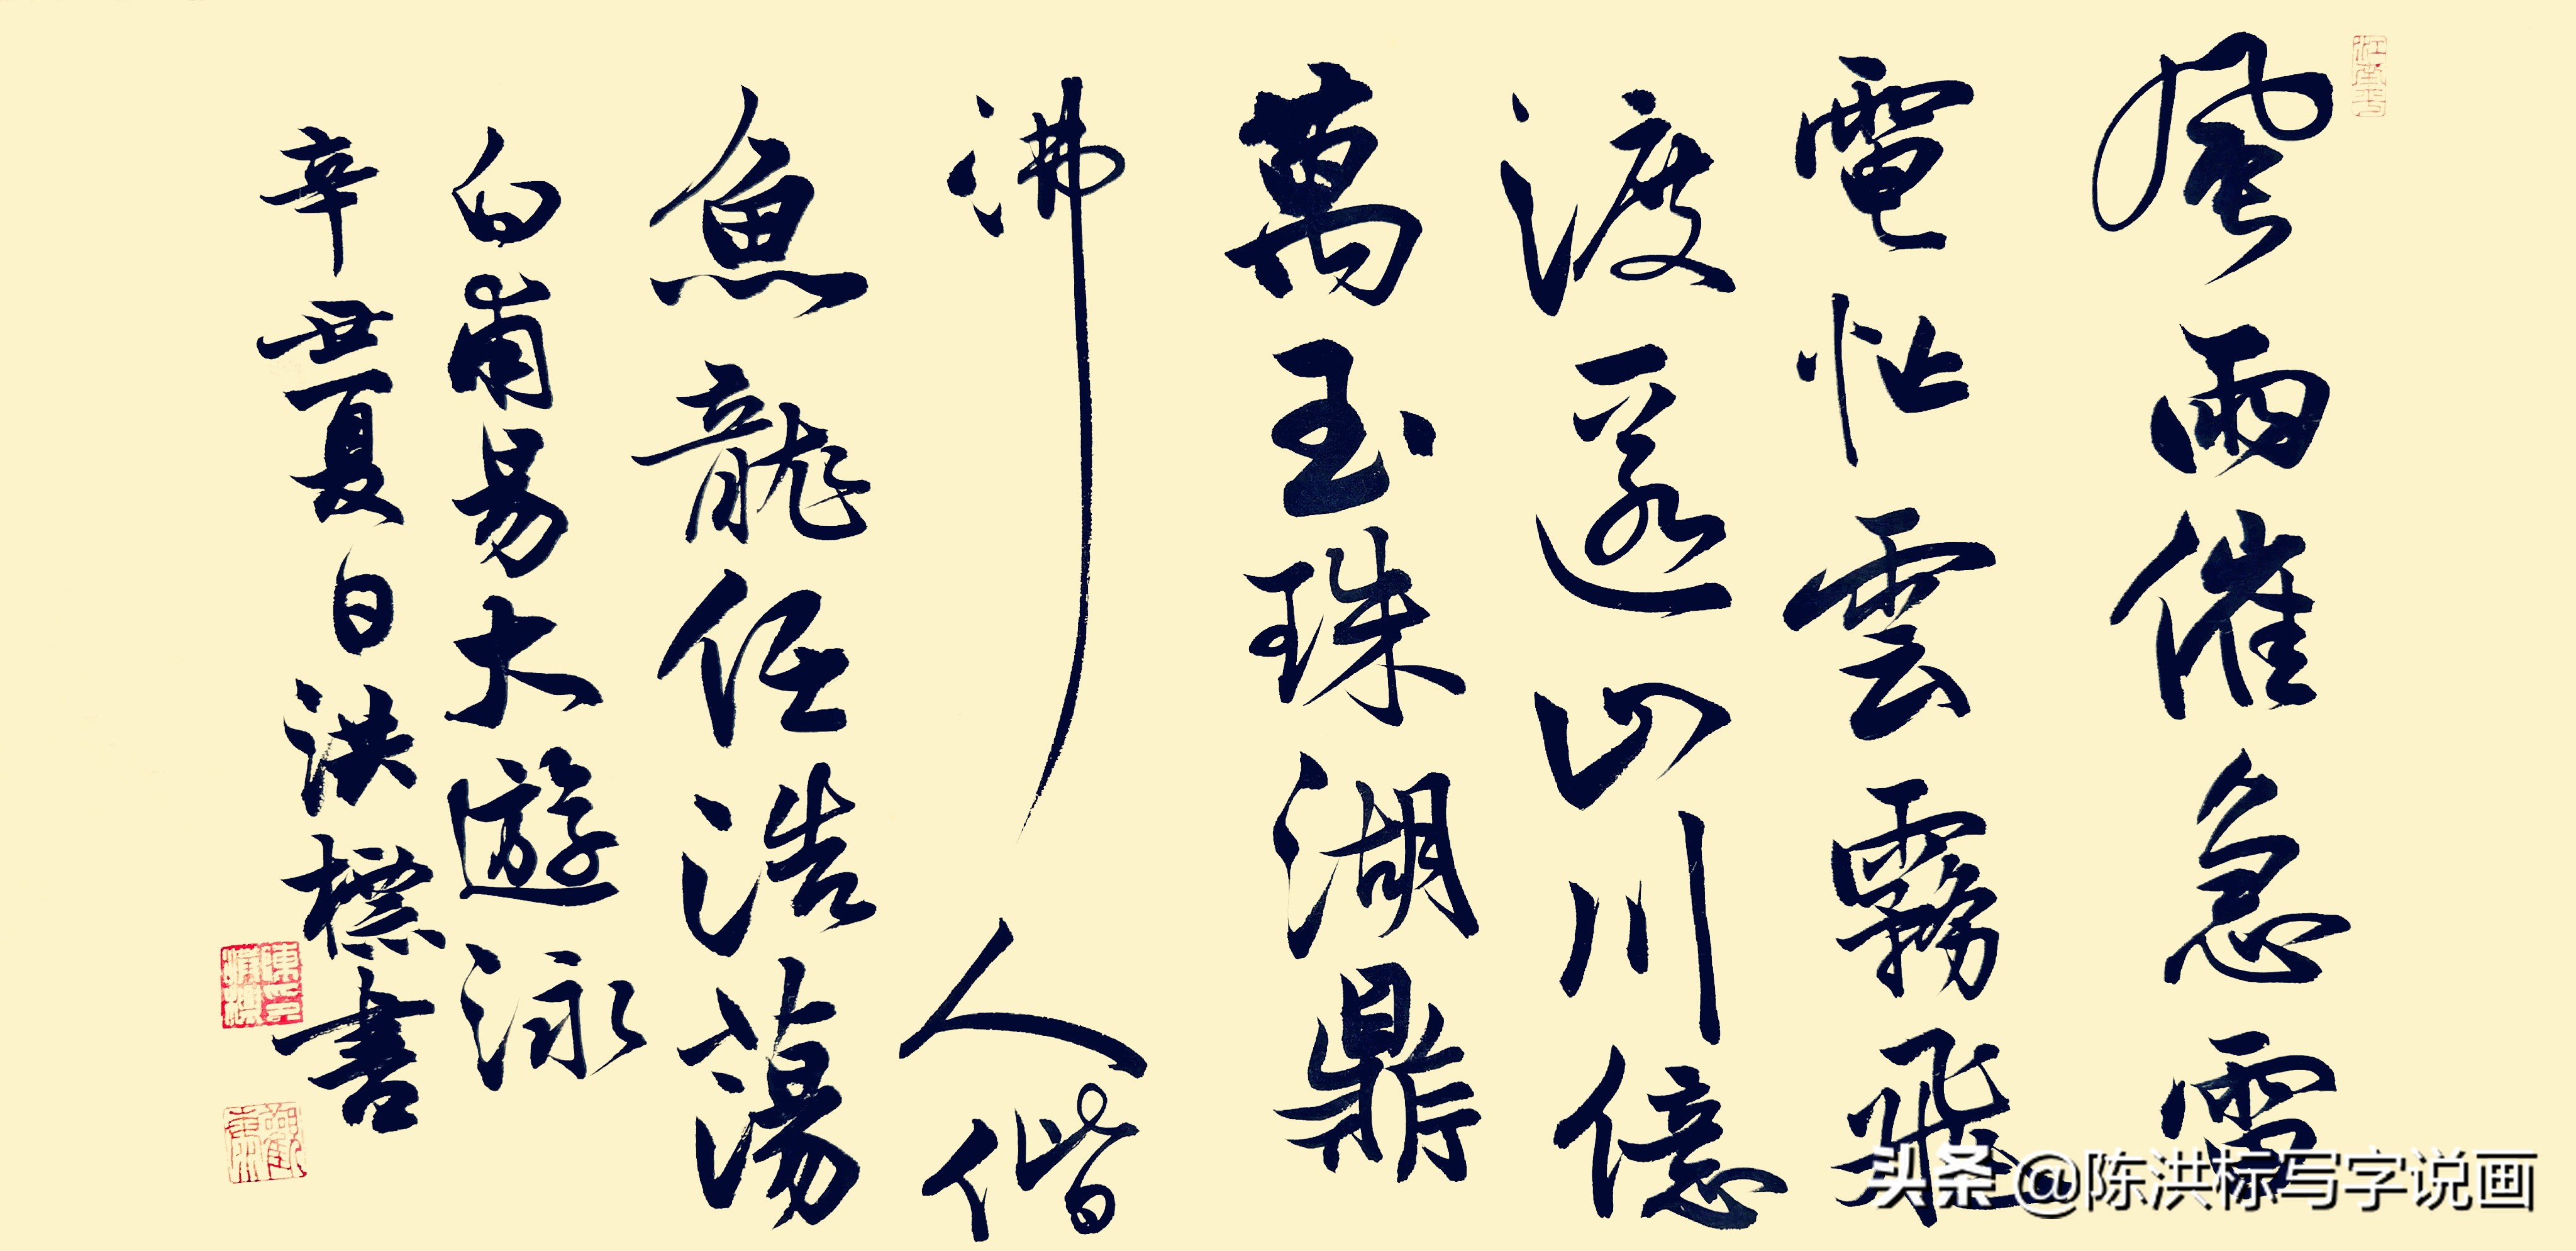 風雨催急雷
電忙雲霧飛
渡山川億
萬玉珠湖鼎
沸人偕
魚龍任浩蕩
白甫易大遊泳
辛丑夏日洪標書
头条 @陈洪标写字说画